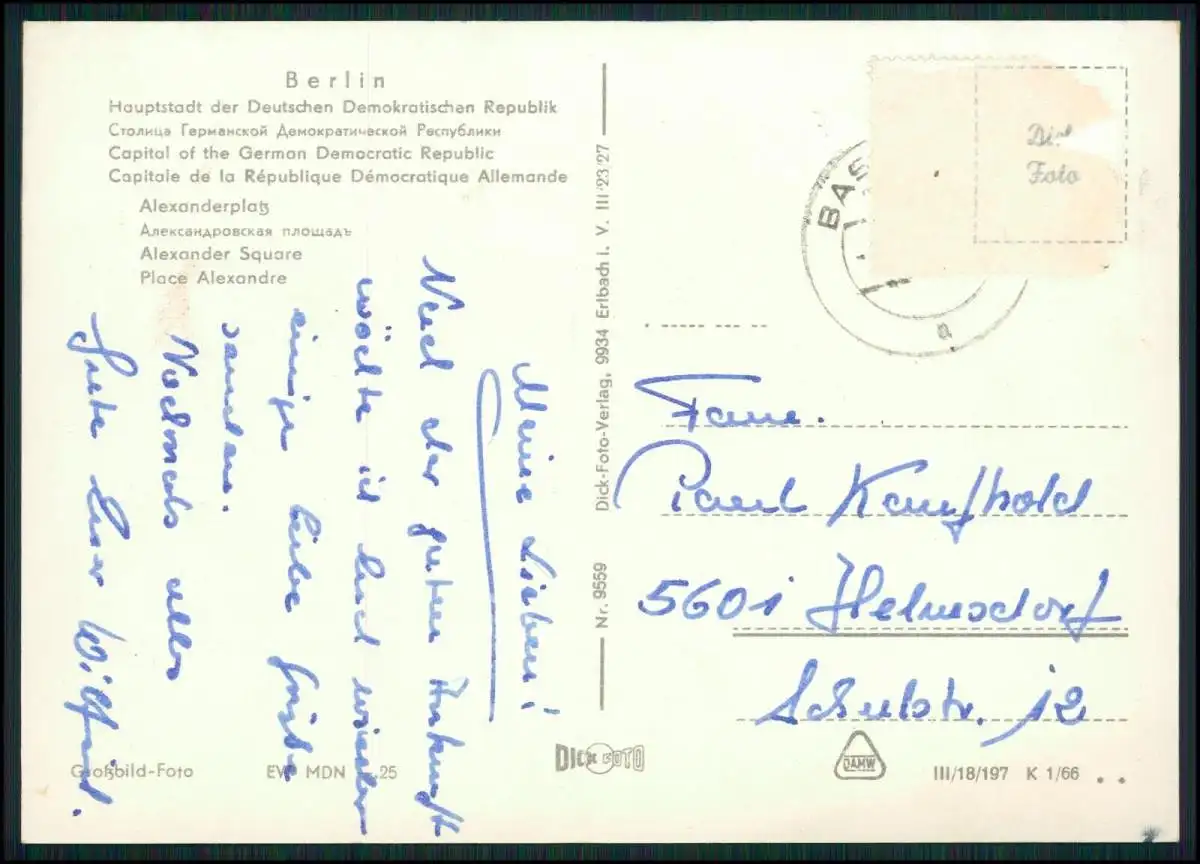 Berlin
Hauptstadt der Deutschen Demokratischen Republik
Столица Германской Демократической Республики
Capital of the German Democratic Republic
Capitale de la République Démocratique Allemande
Alexanderplatz
Александровская площадъ
Alexander Square
Place Alexandre
Meine Lieben!
Nach der guten Ankunft
möchte ich Euch wieder
einige liebe Grüße
senden.
Nochmals alles
Gute Euer Wilfried.
Großbild-Foto
EVP MDN 25
Nr. 9559
Dick-Foto-Verlag, 9934 Erlbach i. V. III/23/27
DICK FOTO
BAS
a
Foto
Fam.
Paul Kaufhold
5601 Helmsdorf
Schulstr. 12
DAMW
III/18/197 K 1/66